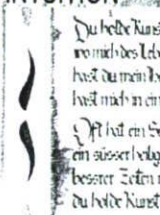 Du holde Kuns
wo mich des Leb
hast du mein
hast mich in ein
Oft hat ein S
ein süsser heilig
besster Zeiten
du holde Kunst